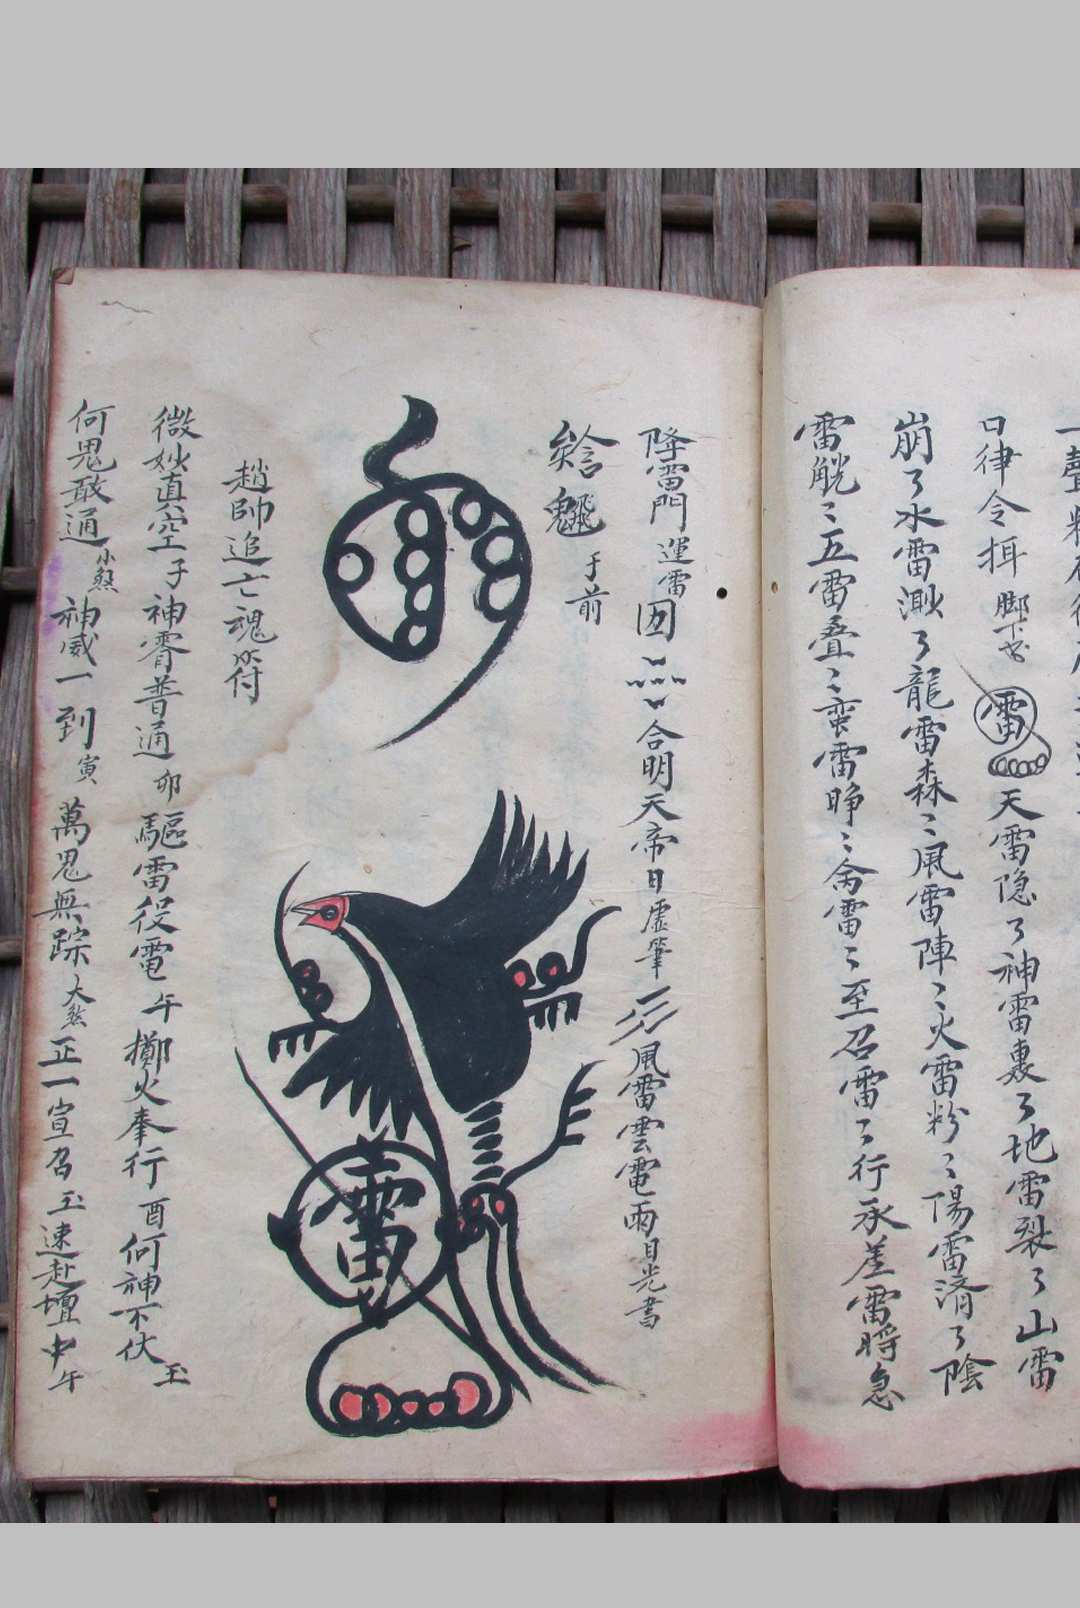 一聲
口律令揖脚下書雷天雷隐了神雷裏了地雷裂了山雷
崩了水雷
了龍雷森〻風雷陣〻火雷粉〻陽雷濟了陰
雷
〻五雷叠〻蛮雹睁〻
雷〻至召雷了行承差雷將急
降雷門運雷
合明天帝日虚筆
風雷雲電雨目光書
于前
趙帥追亡魂符
微妙真空子神霄普通卯驅雷役電午擲火奉行酉何神不伏玉
何鬼敢通小煞神威一到寅萬鬼無踪大煞正一宣召玉速赴壇中午
雷